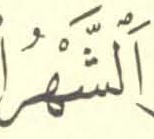 اَلشَّهْرُ